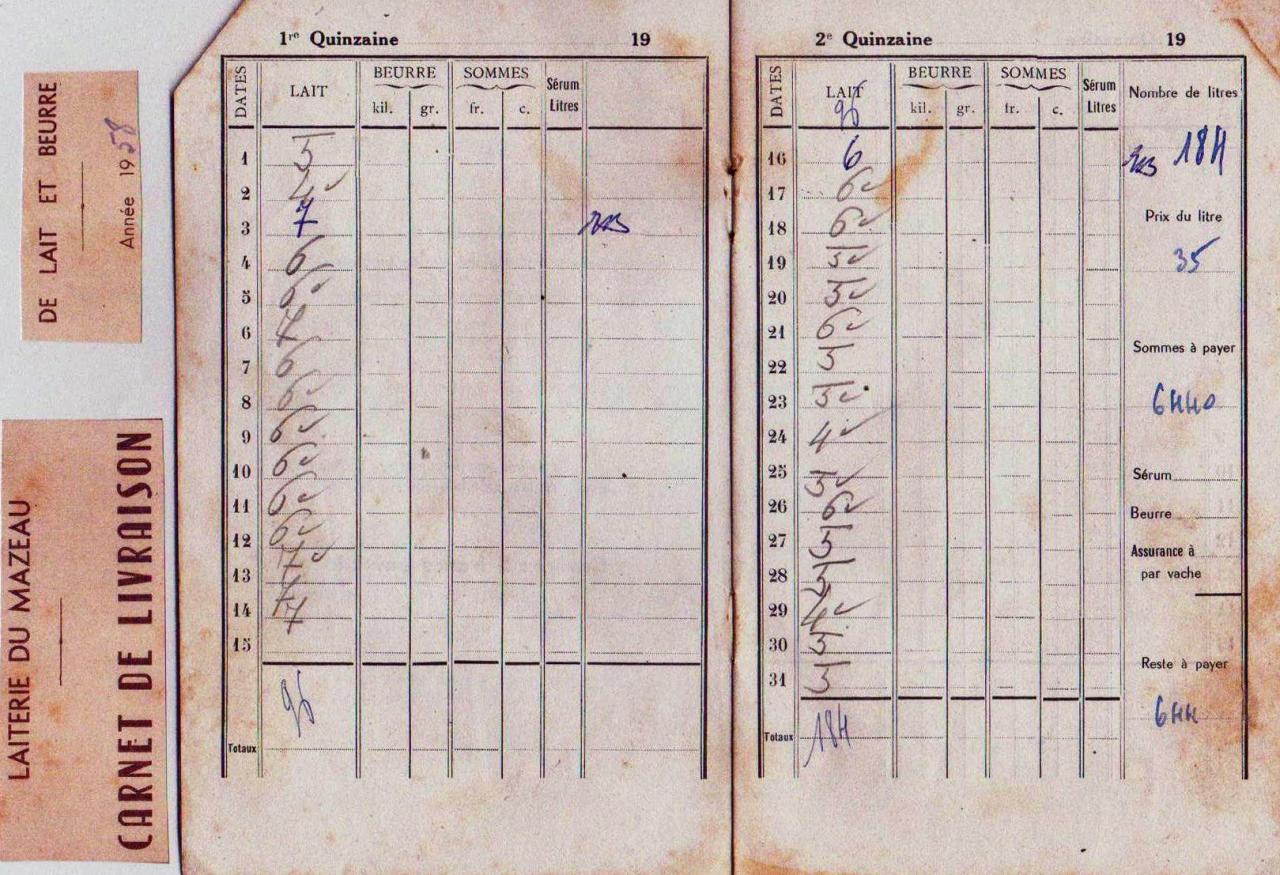 DE LAIT ET BEURRE
Année 1958
LAITERIE DU MAZEAU
CARNET DE LIVRAISON
1re Quinzaine 19
DATES LAIT BEURRE kil. gr. SOMMES fr. c. Sérum Litres
1 5
2 4
3 7
4 6
5 6
6 7
7 6
8 6
9 6
10 6
11 6
12 6
13 7
14 7
15 7
96
Totaux
2e Quinzaine 19
DATES LAIT BEURRE kil. gr. SOMMES fr. c. Sérum Litres
96
16 6
17 6
18 6
19 5
20 5
21 6
22 5
23 5
24 4
25 5
26 6
27 5
28 5
29 4
30 5
31 5
Totaux 184
Nombre de litres
184
Prix du litre
35
Sommes à payer
6440
Sérum
Beurre
Assurance à
par vache
Reste à payer
644